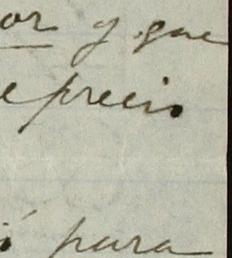 or y que
e precio
ó para